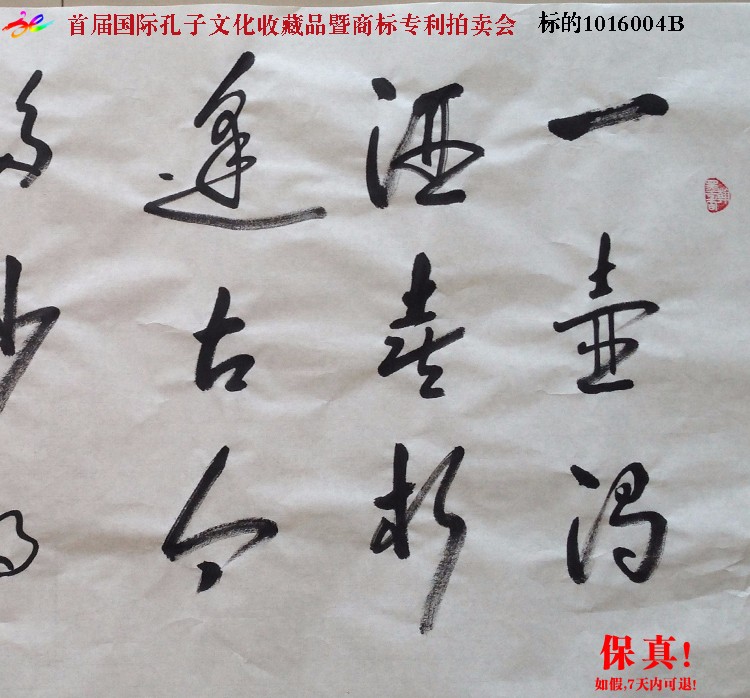 首届国际孔子文化收藏品暨商标专利拍卖会 标的1016004B
一壺濁
酒喜相
逢古今
多少
保真!
如假,7天内可退!